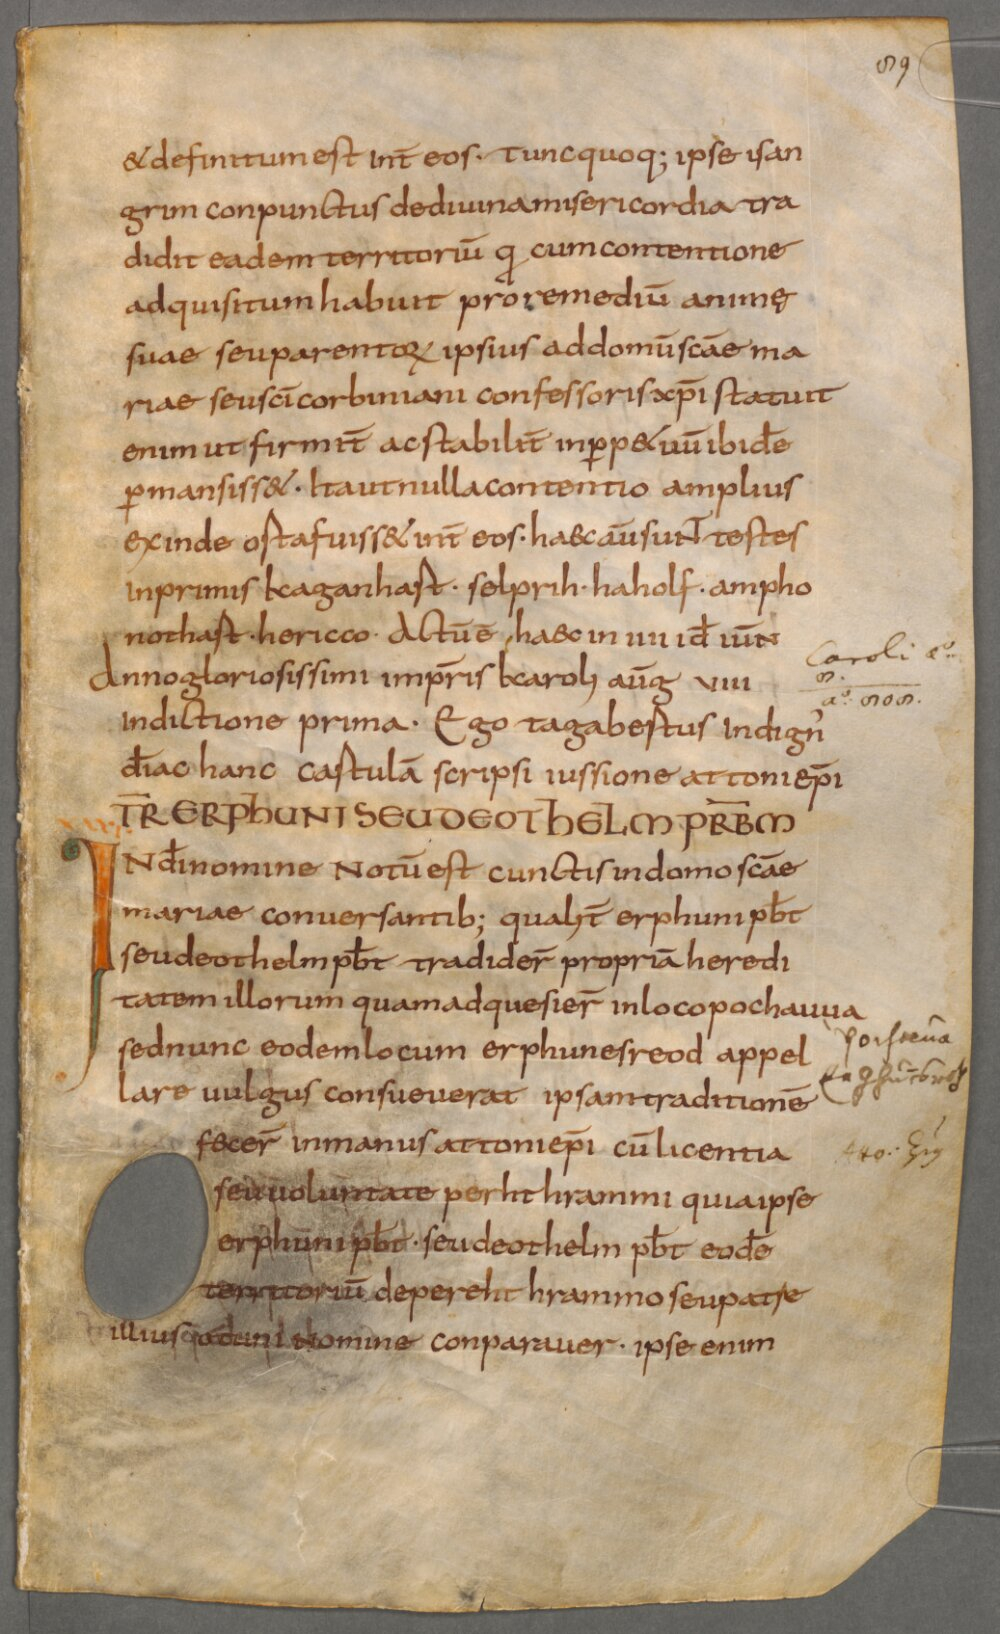 59
& definitum est int̄ eos · tunc quoq; ipse isan
grim conpunctus de divina misericordia tra
didit eadem territoriū q̄ cum contentione
adquisitum habuit pro remediū animę
suae seu parentoꝝ ipsius ad domū scāe ma
riae seu sc̄i corbiniani confessoris xp̄i statuit
enim ut firmit̄ ac stabilit̄ in ꝑp&uū ibidē
ꝑmansiss& · Ita ut nulla contentio amplius
exinde osta fuiss& int̄ eos · haec aū sunt̄ testes
Inprimis kaganhast · selprih · haholf · ampho
nothast · hericco · Actū ē haec in IIII id̄ iūn
Anno gloriosissimi imp̄ris karoli aūg VIII
Caroli aº
8.
aº. 808.
Indictione prima · Ego tagabestus Indign᾽
d̄iac hanc castulā scripsi iussione attoni ep̄i
T̄R ERPHUNI SEU DEOTHELM PR̄BM
IN d̄i nomine Notū est cunctis in domo scāe
mariae conversantib; qualit̄ erphuni pb̄t
seu deothelm pb̄t tradider̄ propriā heredi
tatem illorum quam adquesier̄ in loco pochauua
sed nunc eodem locum erphunesreod appel
lare vulgus consueverat ipsam traditionē
fecer̄ in manus attoni ep̄i cū licentia
Atto.
seu voluntate perhthrammi quia ipse
erphuni pb̄t · seu deothelm pb̄t eodē
territoriū de perehthrammo seu patre
illius nomine conparaver · ipse enim